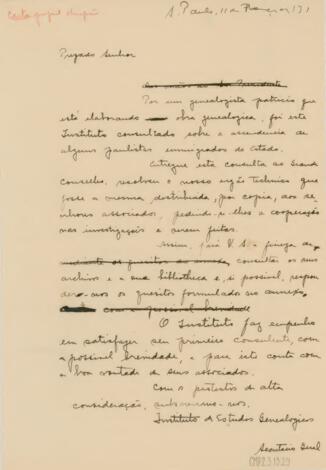 Carta papel chupão
S. Paulo, 11 de Março de 1931
Prezado Senhor
Por um genealogista patricio que
está elaborando obra genealogica, foi este
Instituto consultado sobre a ascendencia de
alguns paulistas emigrados do Estado.
Entregue esta consulta ao Grande
Conselho, resolveu o nosso orgão technico que
fosse a mesma distribuida, por copia, aos se-
nhores associados, pedindo-se-lhes a cooperação
nas investigações a serem feitas.
Assim, fará V. S. a fineza de
consultar os seus
archivos e a sua bibliotheca e, si possivel, respon-
der-nos os quesitos formulados no annexo.
com a possivel brevidade
O Instituto faz empenho
em satisfazer seu primeiro consulente, com
a possivel brevidade, e para isto conta com
a boa vontade de seus associados.
Com os protestos de alta
consideração, subscrevemo-nos,
Instituto de Estudos Genealogicos
Secretario Geral